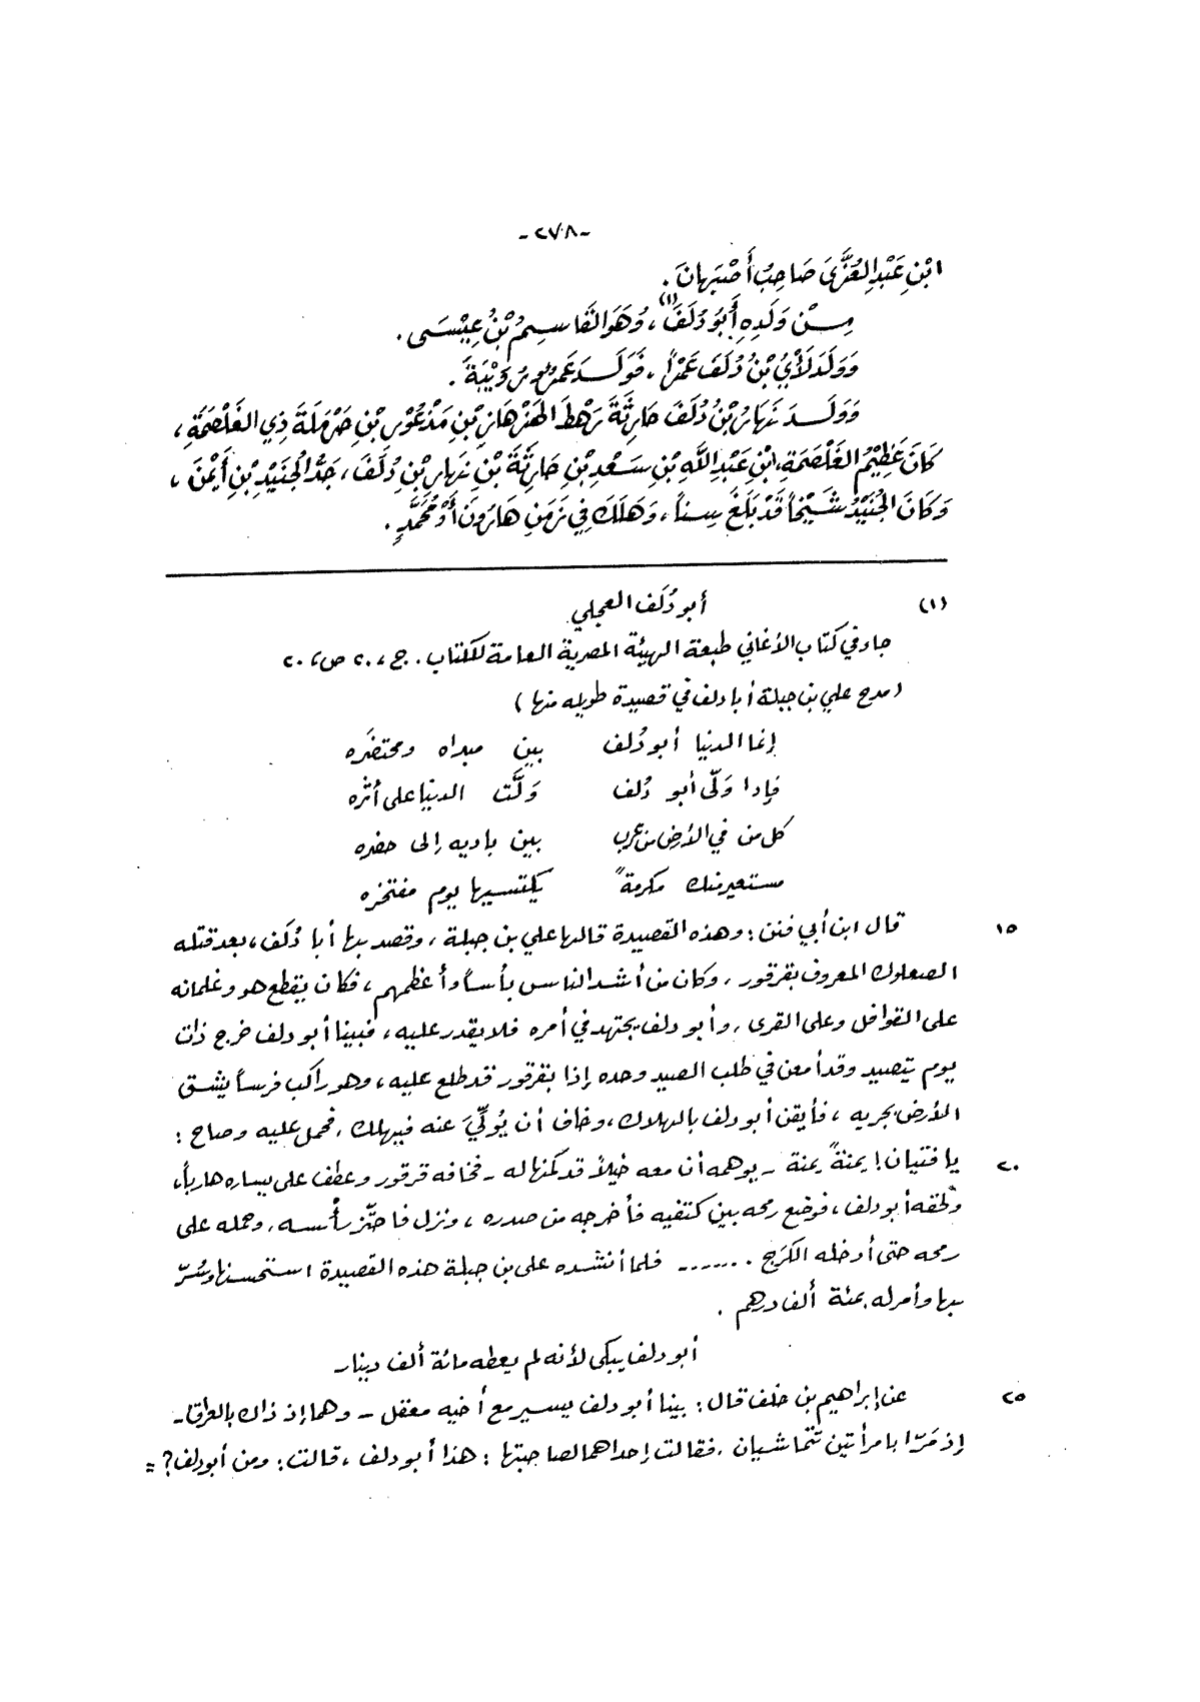 -٢٧٨-
ابْنِ عَبْدِ العُزَّى صَاحِبُ أَصْبَهَانَ .
مِـنْ وَلَدِهِ أَبُو دُلَفَ(١)، وَهُوَ القَاسِمُ بْنُ عِيْسَى .
وَوَلَدَ لَأْيُ بْنُ دُلَفَ عَمْرًا، فَوَلَـدَ عَمْرٌو رُوَيْبَةَ .
وَوَلَـدَ نَهَارُ بْنُ دُلَفَ حَارِثَةَ رَهْطَ الهَزْهَازِ بْنِ مَذْعُوْرِ بْنِ حَرْمَلَةَ ذِي الغَلْصَمَةِ ،
كَانَ عَظِيْمَ الغَلْصَمَةِ، ابْنِ عَبْدِ اللَّهِ بْنِ سَعْدِ بْنِ حَارِثَةَ بْنِ نَهَارِ بْنِ دُلَفَ ، جَدُّ الجُنَيْدِ بْنِ أَيْمَنَ ،
وَكَانَ الجُنَيْدُ شَيْخًا قَدْ بَلَغَ سِنًّا، وَهَلَكَ فِي زَمَنِ هَارُونَ أَوْ مُحَمَّدٍ .
(١) أبو دُلَف العجلي
جاء في كتاب الأغاني طبعة الهيئة المصرية العامة للكتاب . ج ، ٢٠ ص ، ٢٠
(مدح علي بن جبلة أبا دلف في قصيدة طويله منها)
إنما الدنيا أبو دُلف بين مبداه ومحتضَره
فإدا وَلّى أبو دُلف وَلَّت الدنيا على أثره
كل من في الأرض من عرب بين باديه إلى حضره
مستعير منك مكرمةً يكتسيها يوم مفتخره
١٥ قال ابن أبي فنن : وهذه القصيدة قالها علي بن جبلة ، وقصد بها أبا دُلَف ، بعد قتله
الصعلوك المعروف بقرقور ، وكان من أشد الناس بأسًا وأعظمهم ، فكان يقطع هو وغلمانه
على القوافل وعلى القرى ، وأبو دلف يجتهد في أمره فلا يقدر عليه ، فبينا أبو دلف خرج ذات
يوم يتصيد وقد أمعن في طلب الصيد وحده إذا بقرقور قد طلع عليه ، وهو راكب فرسًا يشـق
الأرض بجريه ، فأيقن أبو دلف بالهلاك ، وخاف أن يُولِّيَ عنه فيهلك ، فحمل عليه وصاح :
٢٠ يا فتيان ! يمنةً يمنة - يوهمه أن معه خيلًا قد كمنها له - فخافه قرقور وعطف على يساره هاربًا،
ولحقه أبو دلف ، فوضع رمحه بين كتفيه فأخرجه من صدره ، ونزل فاحتّز رأسه ، وحمله على
رمحه حتى أدخله الكَرَج . ....... فلما أنشده علي بن جبلة هذه القصيدة استحسنها وسُرّ
بها وأمر له بمئة ألف درهم .
أبو دلف يبكي لأنه لم يعطه مائة ألف دينار
٢٥ عن إبراهيم بن خلف قال : بينا أبو دلف يسير مع أخيه معقل - وهما إذ ذاك بالعراق -
إذ مَرّا بامرأتين تتماشيان ، فقالت إحداهما لصاحبتها : هذا أبو دلف ، قالت : ومن أبو دلف ؟ =